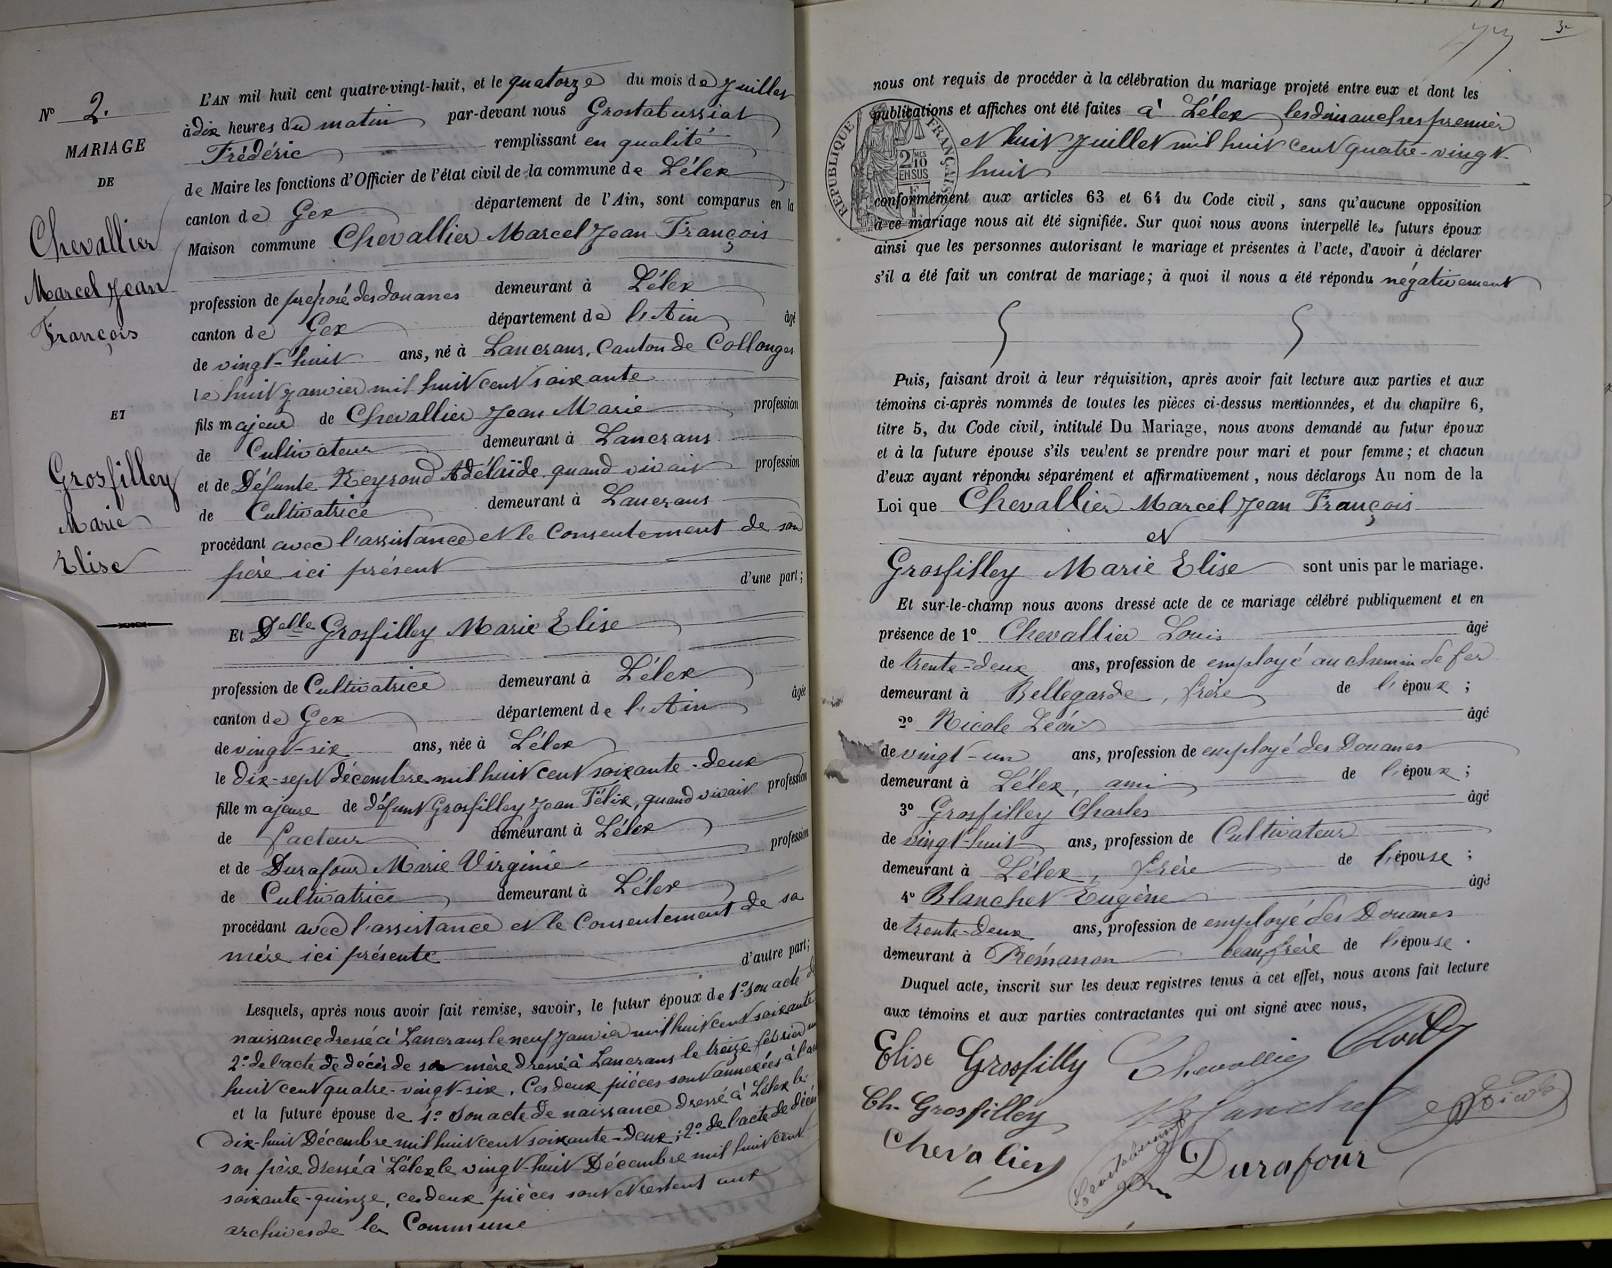 N° 2.
MARIAGE
DE
Chevallier
Marcel Jean
François
ET
Grosfilley
Marie
Elise
L'AN mil huit cent quatre-vingt-huit, et le quatorze du mois de Juillet
à dix heures du matin par-devant nous Grostabussiat
Frédéric remplissant en qualité
de Maire les fonctions d'Officier de l'état civil de la commune de Lélex
canton de Gex département de l'Ain, sont comparus en la
Maison commune Chevallier Marcel Jean François
profession de préposé des douanes demeurant à Lélex
canton de Gex département de l'Ain âgé
de vingt-huit ans, né à Lancrans, Canton de Collonges
le huit janvier mil huit cent soixante
fils majeur de Chevallier Jean Marie profession
de Cultivateur demeurant à Lancrans
et de Défunte Reysond Adélaïde quand vivait profession
de Cultivatrice demeurant à Lancrans
procédant avec l'assistance et le Consentement de son
père ici présent d'une part;
Et Delle Grosfilley Marie Elise
profession de Cultivatrice demeurant à Lélex
canton de Gex département de l'Ain âgée
de vingt-six ans, née à Lélex
le dix-sept décembre mil huit cent soixante-deux
fille majeure de défunt Grosfilley Jean Félix, quand vivait profession
de facteur demeurant à Lélex profession
et de Durafour Marie Virginie
de Cultivatrice demeurant à Lélex
procédant avec l'assistance et le Consentement de sa
mère ici présente d'autre part;
Lesquels, après nous avoir fait remise, savoir, le futur époux de 1° son acte de
naissance dressé à Lancrans le neuf Janvier mil huit cent soixante
2° de l'acte de décès de sa mère dressé à Lancrans le treize février mil
huit cent quatre-vingt-six. Ces deux pièces sont annexées à l'
et la future épouse de 1° Son acte de naissance dressé à Lélex le
dix-huit Décembre mil huit cent soixante-deux; 2° de l'acte de décès
son père dressé à Lélex le vingt-huit Décembre mil huit cent
soixante-quinze, ces deux pièces sont et restent aux
archives de la Commune
3
nous ont requis de procéder à la célébration du mariage projeté entre eux et dont les
publications et affiches ont été faites à Lélex les dimanches premier
et huit Juillet mil huit cent quatre-vingt-
huit
RÉPUBLIQUE FRANÇAISE
2/10 EN SUS
conformément aux articles 63 et 64 du Code civil, sans qu'aucune opposition
à ce mariage nous ait été signifiée. Sur quoi nous avons interpellé les futurs époux
ainsi que les personnes autorisant le mariage et présentes à l'acte, d'avoir à déclarer
s'il a été fait un contrat de mariage; à quoi il nous a été répondu négativement
Puis, faisant droit à leur réquisition, après avoir fait lecture aux parties et aux
témoins ci-après nommés de toutes les pièces ci-dessus mentionnées, et du chapitre 6,
titre 5, du Code civil, intitulé Du Mariage, nous avons demandé au futur époux
et à la future épouse s'ils veulent se prendre pour mari et pour femme; et chacun
d'eux ayant répondu séparément et affirmativement, nous déclarons Au nom de la
Loi que Chevallier Marcel Jean François
et
Grosfilley Marie Elise sont unis par le mariage.
Et sur-le-champ nous avons dressé acte de ce mariage célébré publiquement et en
présence de 1° Chevallier Louis âgé
de trente-deux ans, profession de employé au chemin de fer
demeurant à Bellegarde, frère de l'époux;
2° Nicole Léon âgé
de vingt-un ans, profession de employé des Douanes
demeurant à Lélex, ami de l'époux;
3° Grosfilley Charles âgé
de vingt-huit ans, profession de Cultivateur
demeurant à Lélex, frère de l'épouse;
4° Blanchet Eugène âgé
de trente-deux ans, profession de employé des Douanes
demeurant à Prémanon beau frère de l'épouse.
Duquel acte, inscrit sur les deux registres tenus à cet effet, nous avons fait lecture
aux témoins et aux parties contractantes qui ont signé avec nous,
Elise Grosfilly Chevallier
Ch. Grosfilley Blanchet
Chevalier Durafour